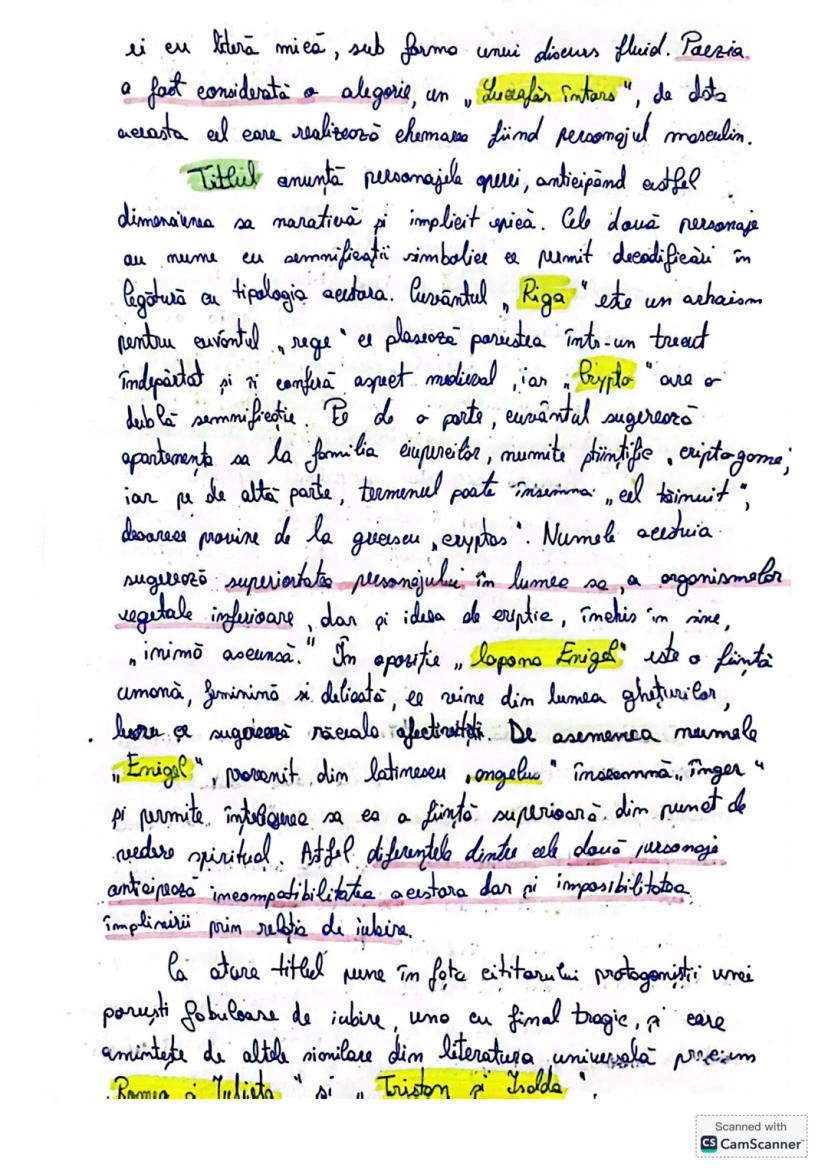 ei cu literă mică, sub forma unui discurs fluid. Poezia
a fost considerată o alegorie, un „Luceafăr întors", de data
aceasta cel care realizează chemarea fiind personajul masculin.
Titlul anunță personajele operei, anticipând astfel
dimensiunea sa narativă și implicit epică. Cele două personaje
au nume cu semnificații simbolice ce permit decodificări în
legătură cu tipologia acestora. Cuvântul „Riga" este un arhaism
pentru cuvântul „rege" ce plasează povestea într-un trecut
îndepărtat și îi conferă aspect medieval, iar „Crypto" are o
dublă semnificație. Pe de o parte, cuvântul sugerează
apartenența sa la familia ciupercilor, numite științific „criptogame",
iar pe de altă parte, termenul poate însemna „cel tăinuit",
deoarece provine de la grecescu „cryptos". Numele acestuia
sugerează superioritatea personajului în lumea sa, a organismelor
vegetale inferioare, dar și ideea de criptic, închis în sine,
„inimă ascunsă." În opoziție „lapona Enigel" este o ființă
umană, feminină si delicată, ce vine din lumea ghețurilor,
lucru ce sugerează răceala afectivității. De asemenea numele
„Enigel", provenit din latinescu „angelus" înseamnă „înger"
și permite înțelegerea sa ca o ființă superioară din punct de
vedere spiritual. Astfel diferențele dintre cele două personaje
anticipează incompatibilitatea acestora dar și imposibilitatea
împlinirii prin relația de iubire.
Ca atare titlul pune în fața cititarului protagoniștii unei
povești fabuloase de iubire, una cu final tragic, și care
amintește de altele similare din literatura universală precum
„Romeo și Julieta" si „Tristan și Isolda".
Scanned with
CS CamScanner